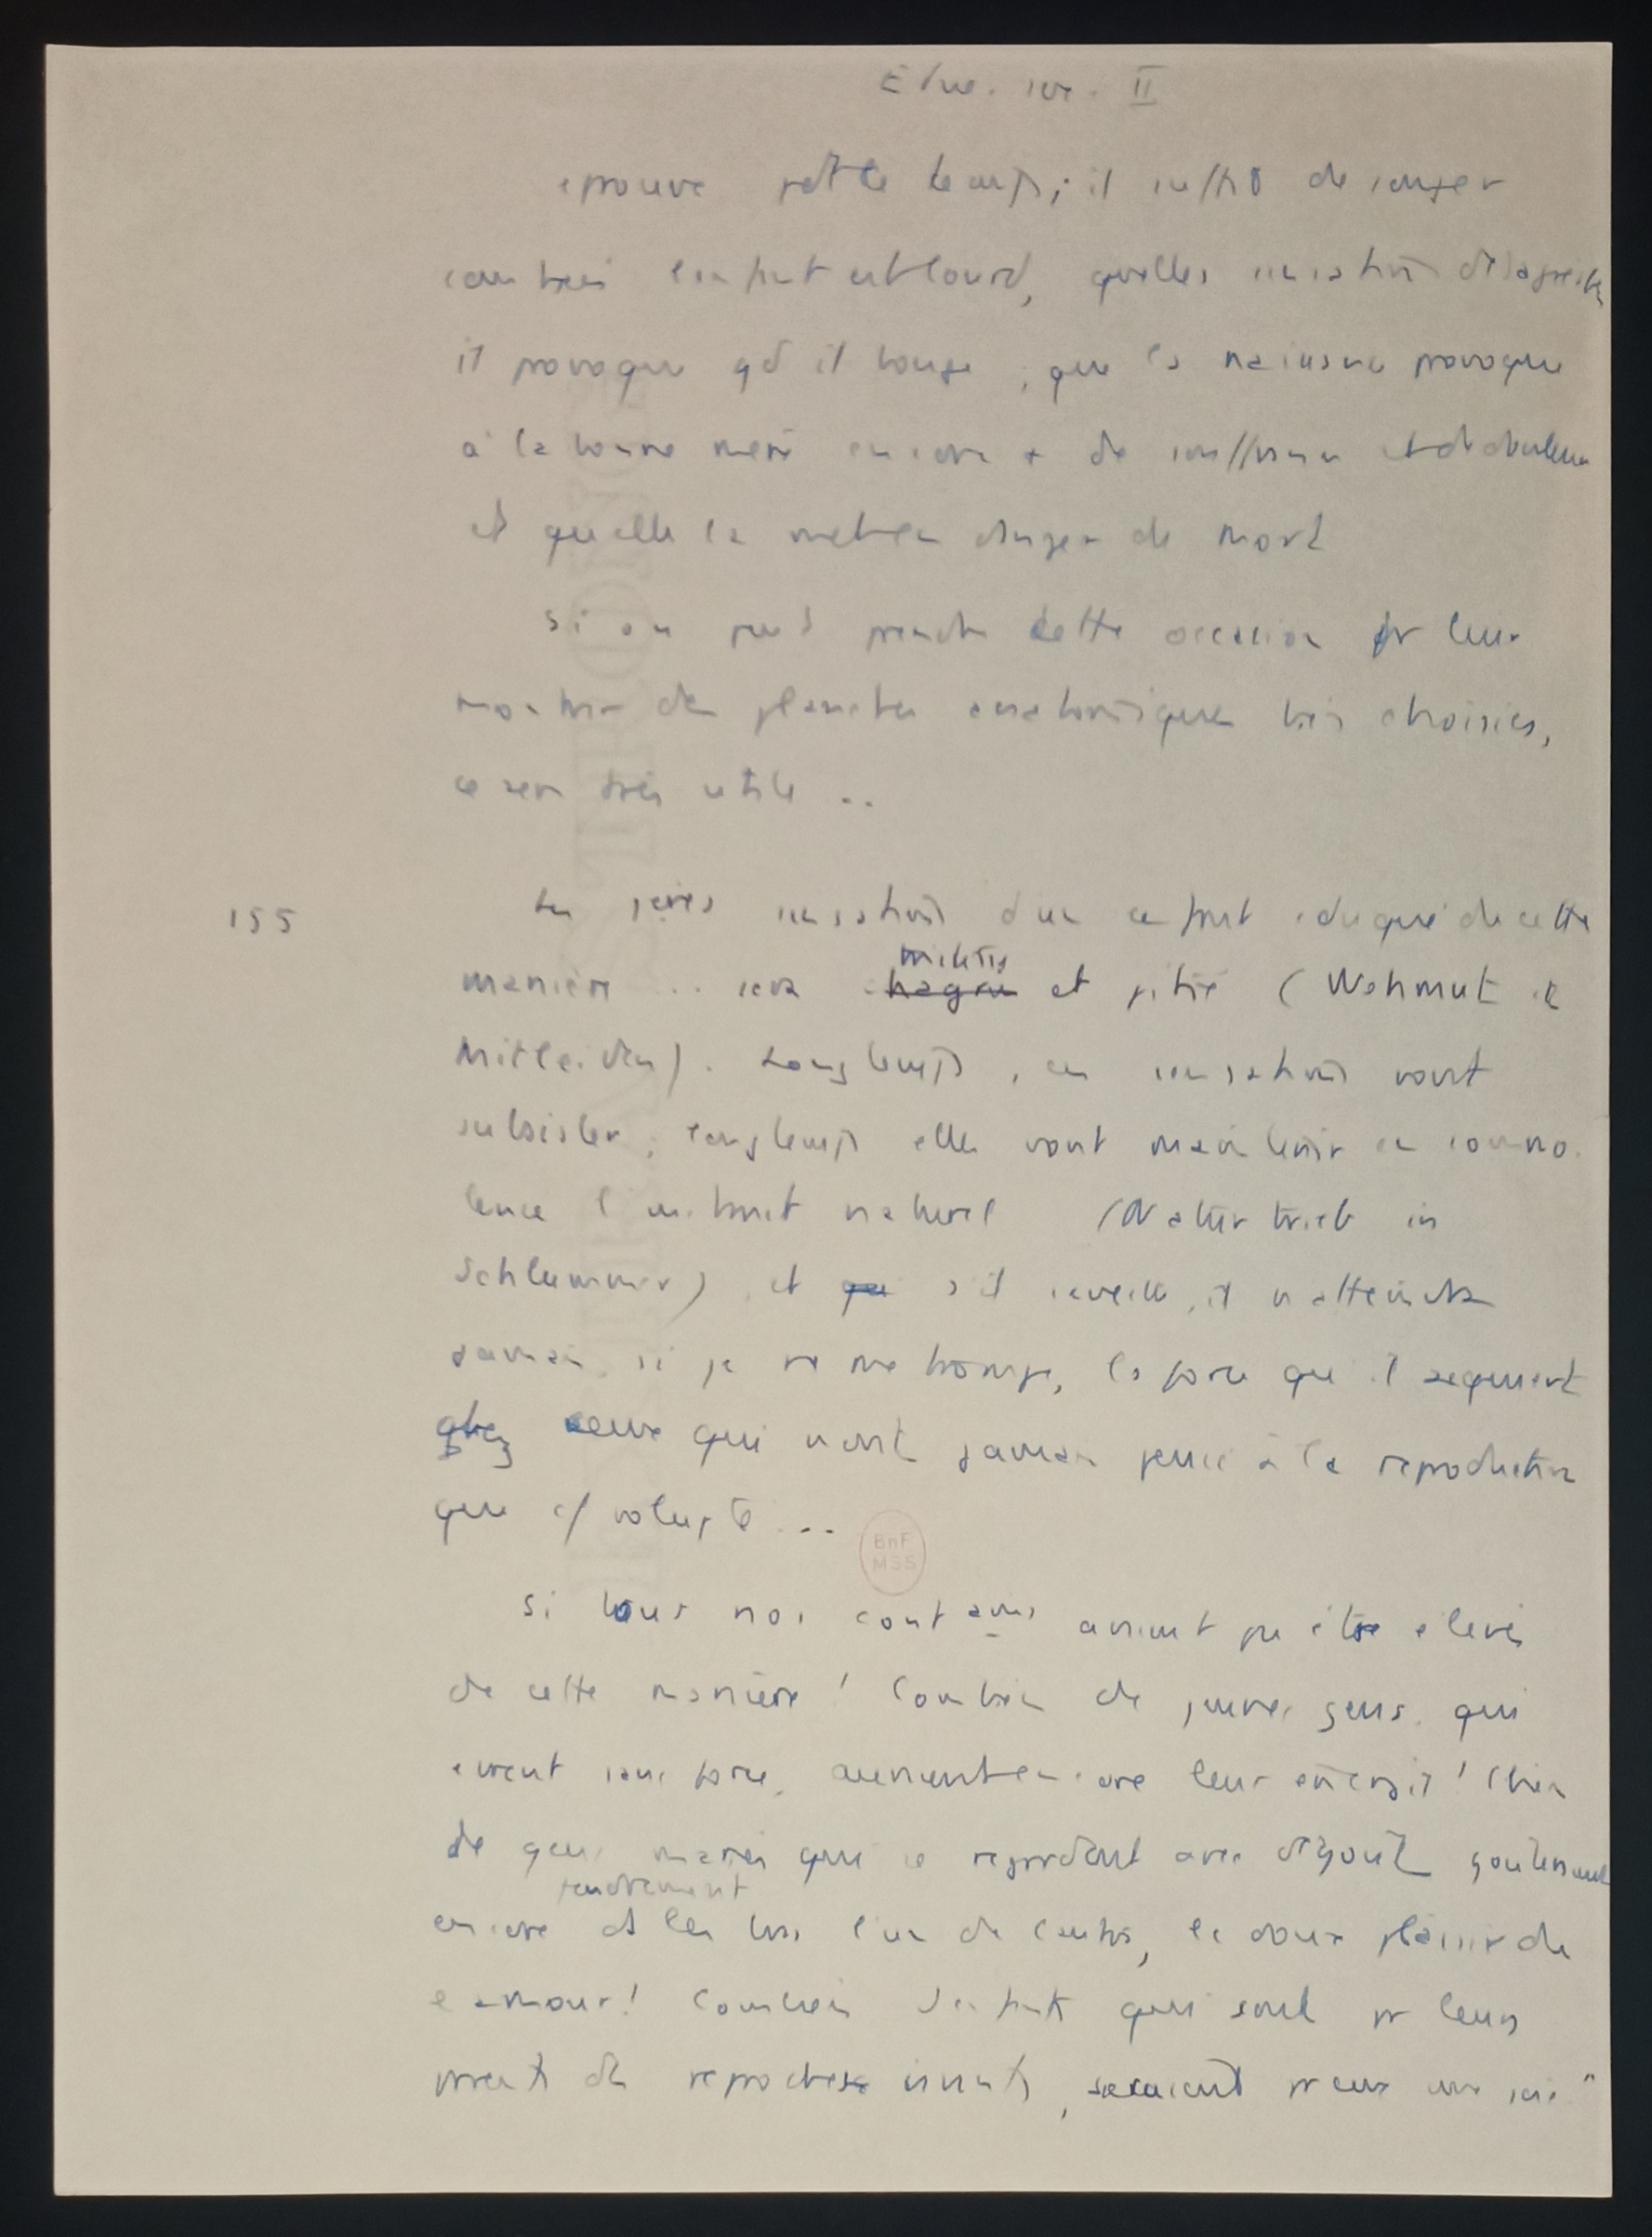 Educ. sex. II
éprouve pdt ce temps; il suffit de songer
combien l'enfant est lourd, quelles sensations désagréables
il provoque qd il bouge, que la naissance provoque
à la bonne mère encore + de souffrances et de douleurs
et qu'elle la met en danger de mort
Si on peut prendre cette occasion pr leur
montrer des planches anatomiques bien choisies,
ce sera très utile ..
155 Les 1ères sensations d'un enfant éduqué de cette
manière ... sera
tristesse
chagrin et pitié (Wehmut et
Mitleiden). Longtemps, ces sensations vont
subsister, longtemps elles vont maintenir en somno-
lence l'instinct naturel (Naturtrieb in
Schlummer), et que s'il s'éveille, il n'atteindra
jamais, si je ne me trompe, la force que il acquiert
chez ceux qui n'ont jamais pensé à la reproduction
que c/ volupté ...
BnF
MSS
Si tous nos contemp avaient pu être élevés
de cette manière! Combien de jeunes gens, qui
errent sans force, auraient encore leur énergie! Cbien
de gens mariés qui se regardent avec dégoût goûteraient
tendrement
encore ds les bras l'un de l'autre, le doux plaisir de
l'amour! Combien d'enfants qui sont pr leurs
parents des reproches vivants, seraient pr eux une joie"